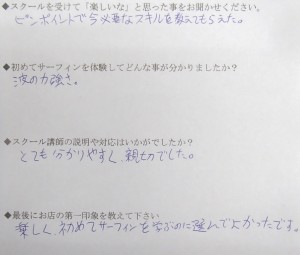 ◆スクールを受けて「楽しいな」と思った事をお聞かせください。
ピンポイントで今必要なスキルを教えてもらえた。
◆初めてサーフィンを体験してどんな事が分かりましたか？
波の力強さ。
◆スクール講師の説明や対応はいかがでしたか？
とても分かりやすく、親切でした。
◆最後にお店の第一印象を教えて下さい
楽しく、初めてサーフィンを学ぶのに選んでよかったです。